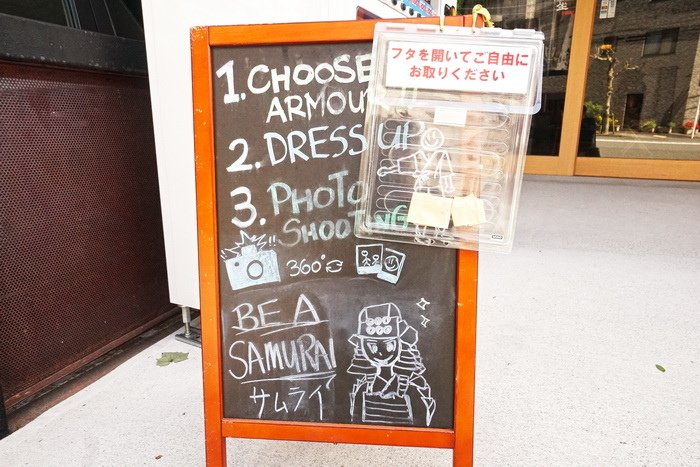 1. CHOOSE
ARMOU
2. DRESS UP
3. PHOTO
SHOOTING
360°
BE A
SAMURAI
サムライ
フタを開いてご自由に
お取りください